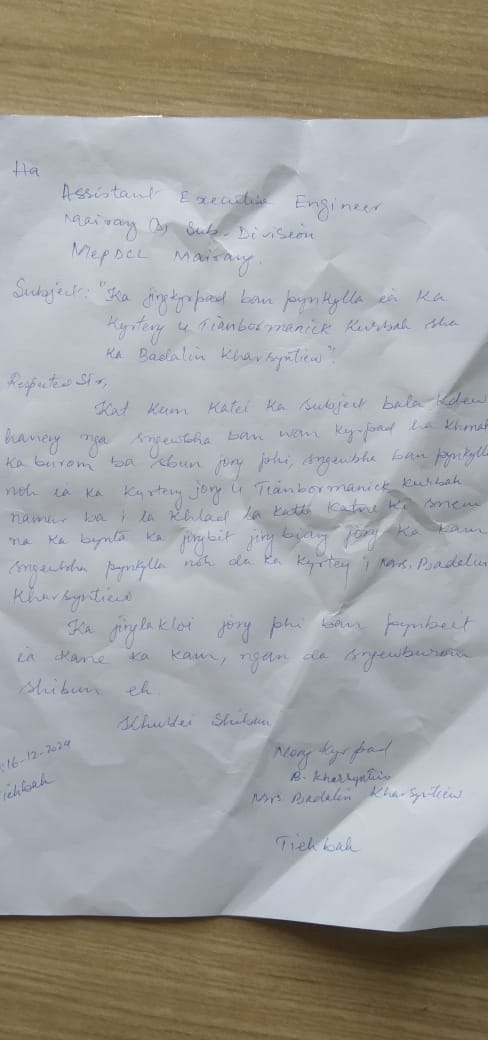 Ha
Assistant Executive Engineer
Mairang Sub-Division
MePDCL Mairang.
Subject: "Ka jingkyrpad ban pynkylla ïa ka
Kyrteng u Tianbormanick Kurbah sha
ka Badalin Kharsyntiew".
Respected Sir,
Kat kum katei ka subject bala kdew
haneng nga sngewbha ban wan kyrpad ha khmat
ka burom ba shun jong phi, sngewbha ban pynkylla
noh ïa ka kyrteng jong u Tianbormanick Kurbah
namar ba i la khlad la katto katne ki snem
na ka bynta ka jingbit jingbiang jong ka kam
sngewbha pynkylla noh da ka kyrteng i Mrs. Badalin
Kharsyntiew
Ka jinglakloi jong phi ban pynbeit
ïa kane ka kam, ngan da sngewburom
shibun eh.
Khublei Shibun
:16-12-2024
Tiehbah
Nong Kyrpad
B. Kharsyntiew
Mrs Badalin Kharsyntiew
Tiehbah